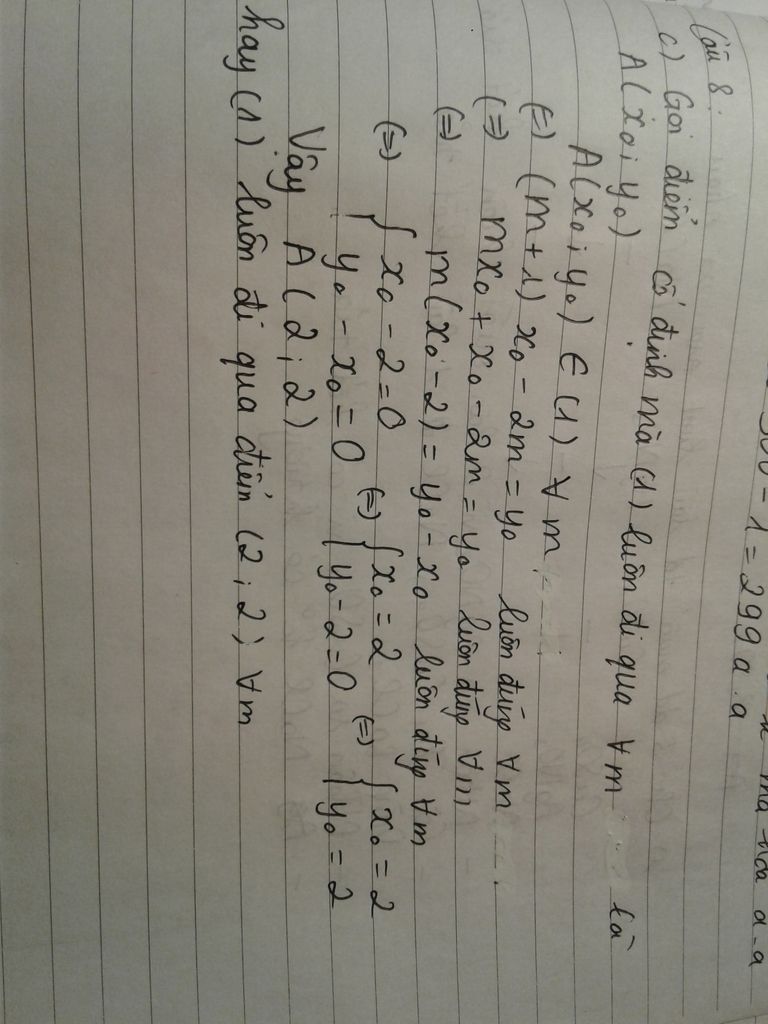 = 299 a.a
Câu 8:
c) Gọi điểm cố định mà (1) luôn đi qua ∀m là
A(x₀; y₀)
A(x₀; y₀) ∈ (1) ∀m
(=) (m+1) x₀ - 2m = y₀ luôn đúng ∀m
(=) mx₀ + x₀ - 2m = y₀ luôn đúng ∀m
(=) m(x₀ - 2) = y₀ - x₀ luôn đúng ∀m
(=) { x₀ - 2 = 0 (=) { x₀ = 2 (=) { x₀ = 2
y₀ - x₀ = 0 { y₀ - 2 = 0 { y₀ = 2
Vậy A(2; 2)
hay (1) luôn đi qua điểm (2; 2) ∀m